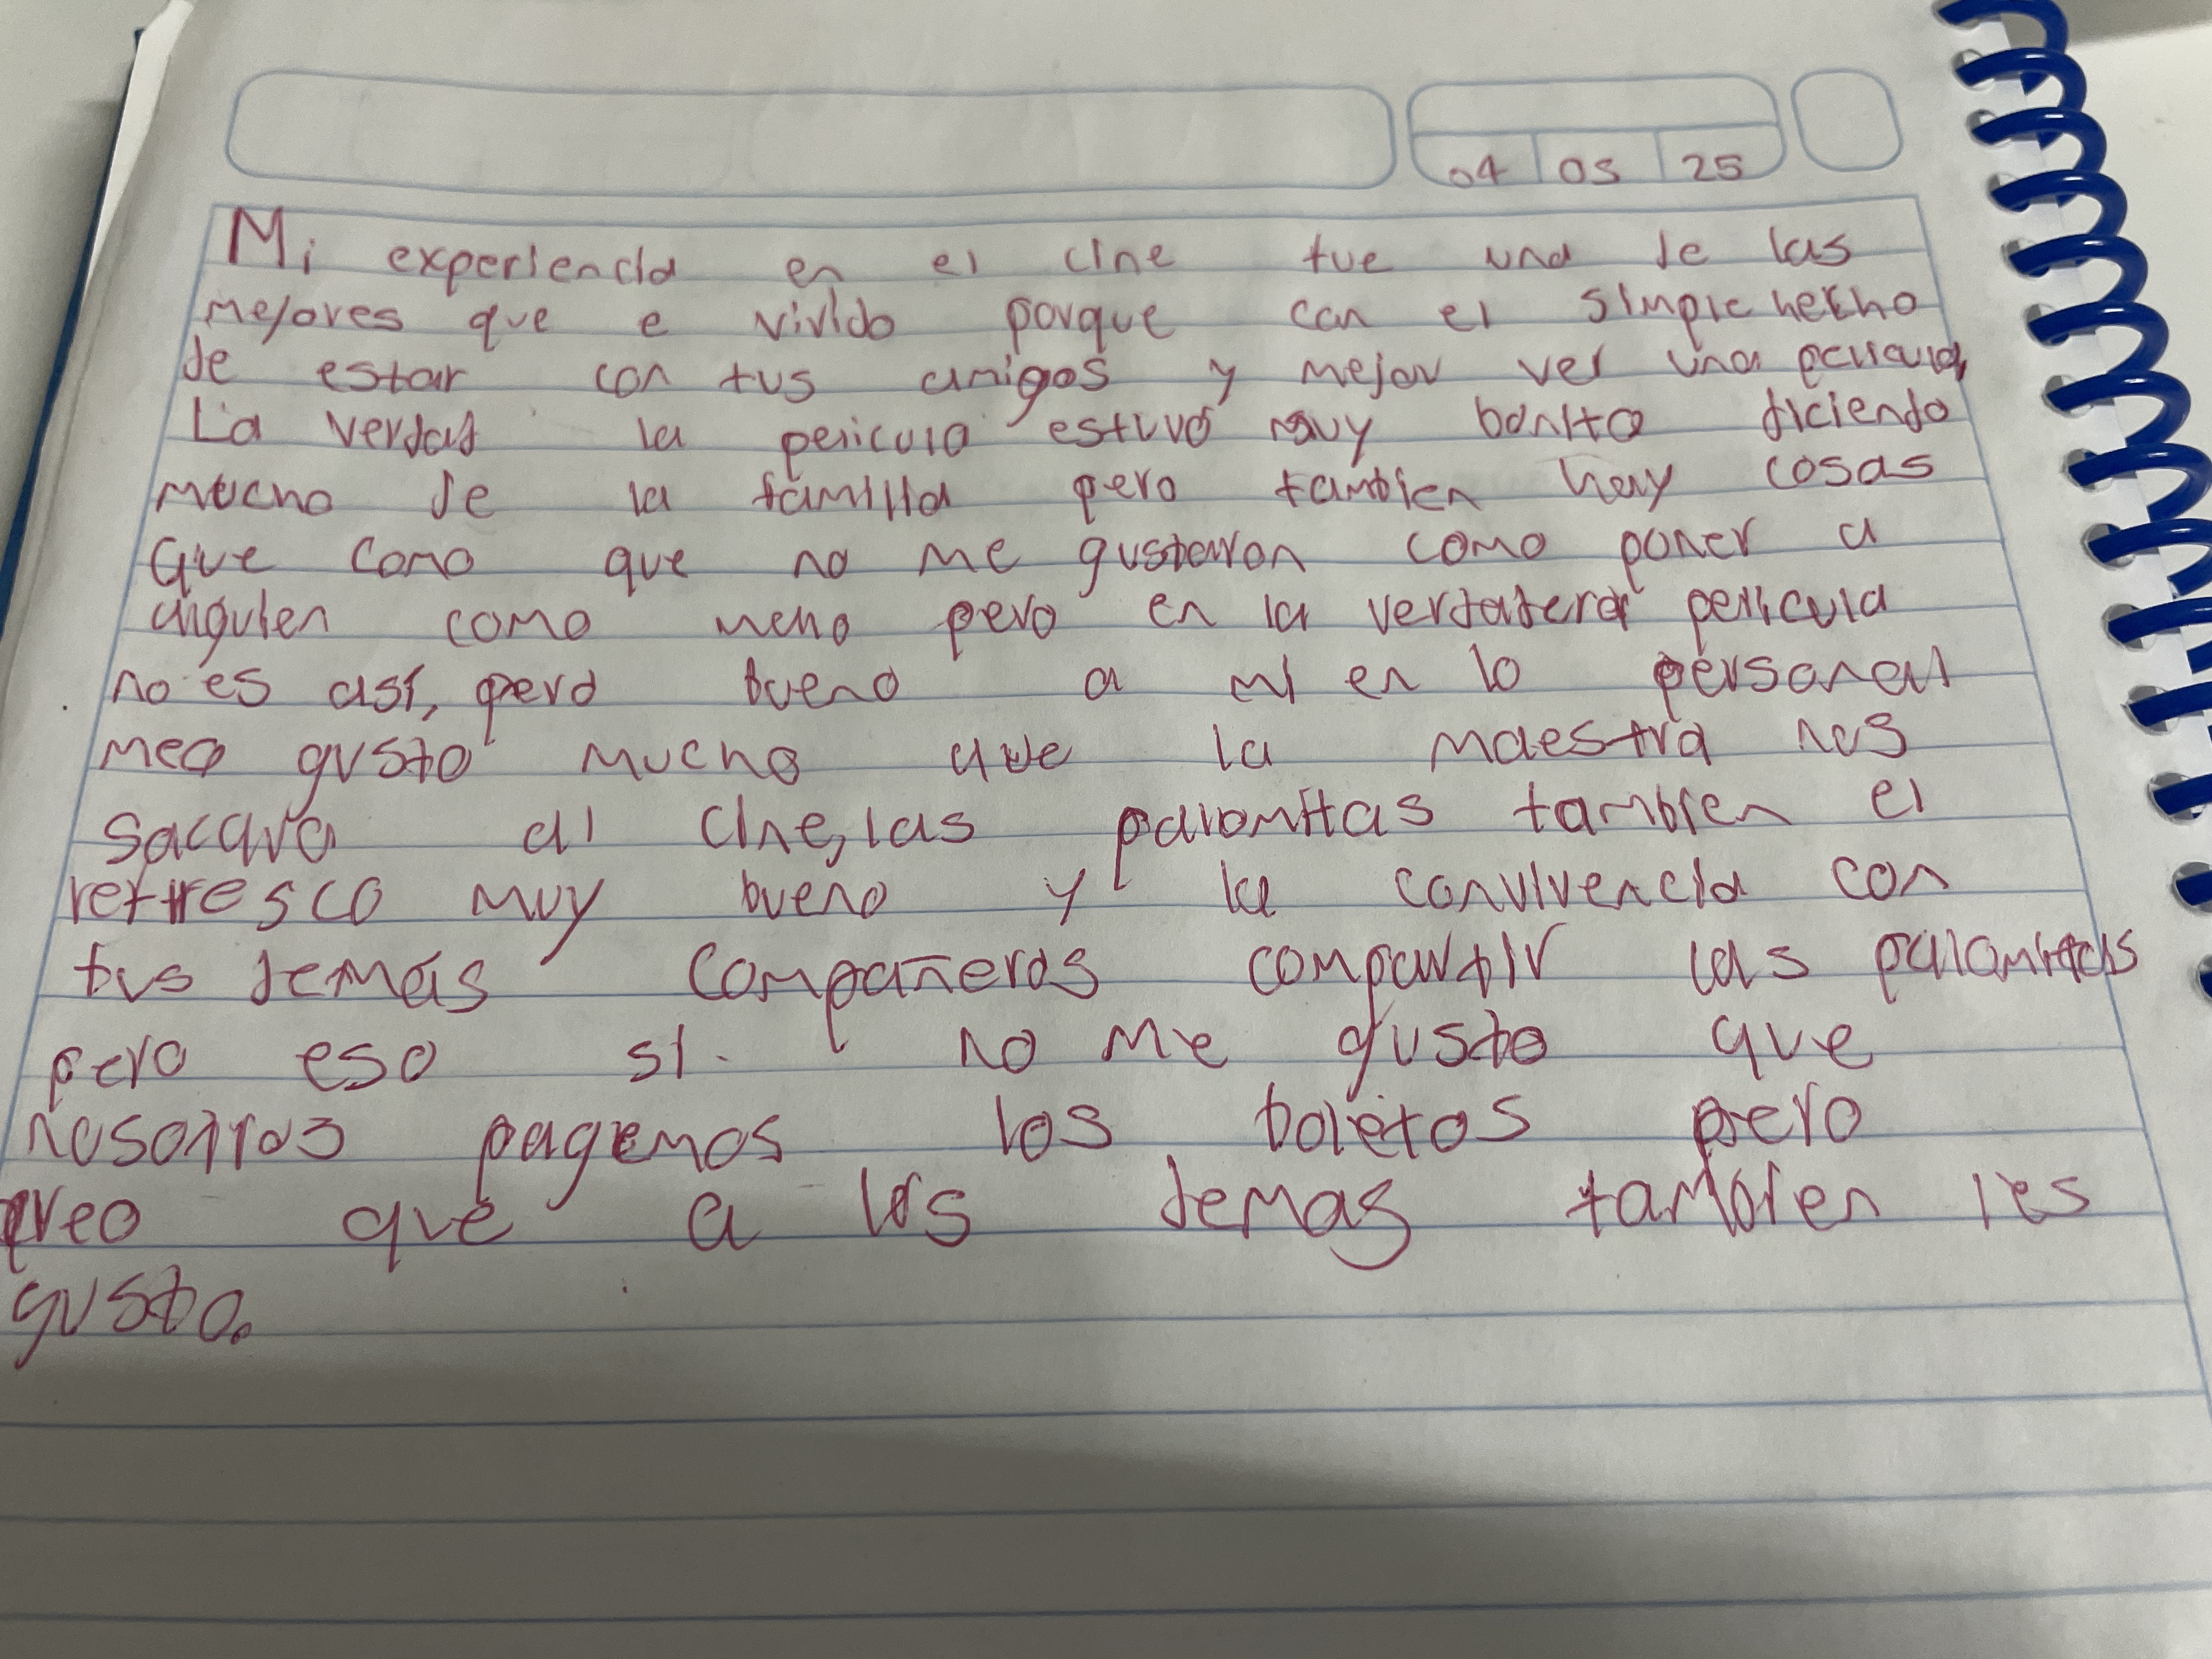 04 05 25
Mi experiencia en el cine fue una de las
mejores que e vivido porque con el simple hecho
de estar con tus amigos y mejor ver una pelicula,
La verdad la pelicula estuvo muy bonita diciendo
mucho de la familia pero tambien hay cosas
que como que no me gustaron como poner a
alguien como pero en la verdadera pelicula
no es así, pero bueno a mi en lo personal
me gusto mucho que la maestra nos
sacara al cine, las palomitas tambien el
refresco muy bueno y la convivencia con
tus demás compañeros compartir las palomitas
pero eso si. no me gusto que
nosotros pagemos los boletos pero
creo que a los demas tambien les
gusto.